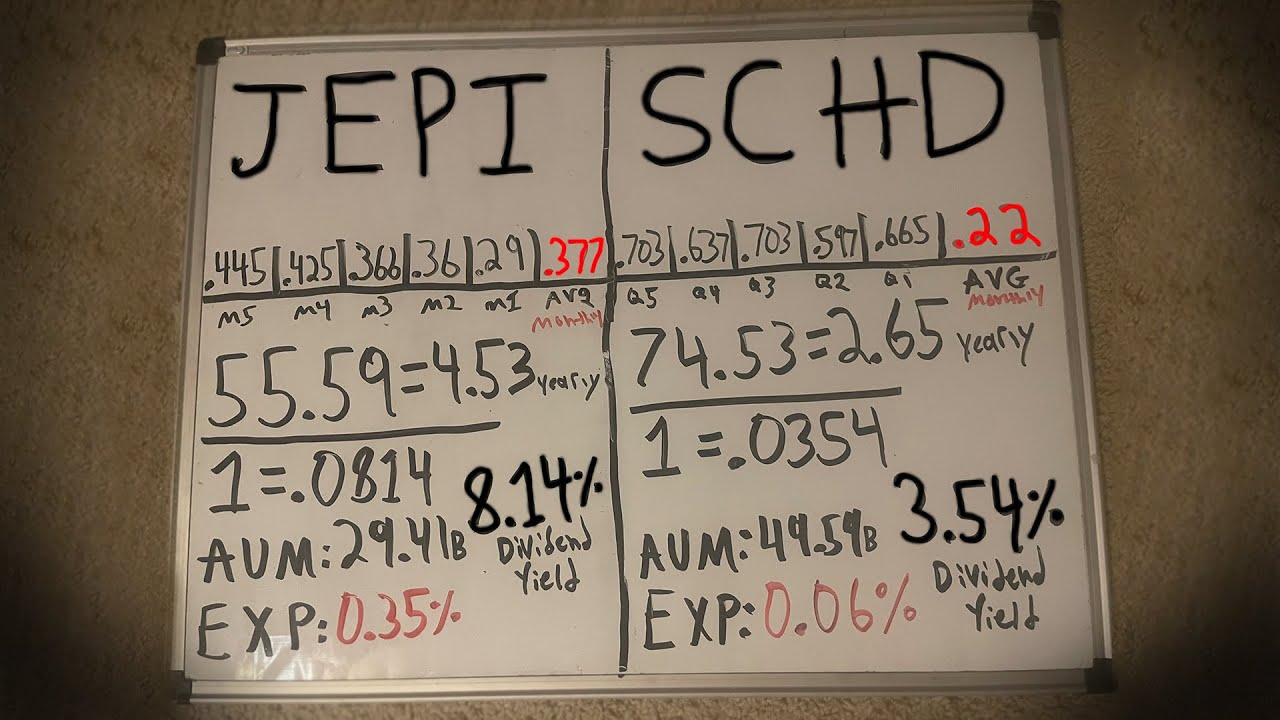 JEPI
.445 .425 .366 .36 .29 .377
M5 M4 M3 M2 M1 AVG
Monthly
55.59=4.53 yearly
1=.0814
8.14%
Dividend
Yield
AUM:29.41B
EXP:0.35%
SCHD
.703 .637 .703 .597 .665 .22
Q5 Q4 Q3 Q2 Q1 AVG
Monthly
74.53=2.65 yearly
1=.0354
3.54%
Dividend
Yield
AUM:49.59B
EXP:0.06%